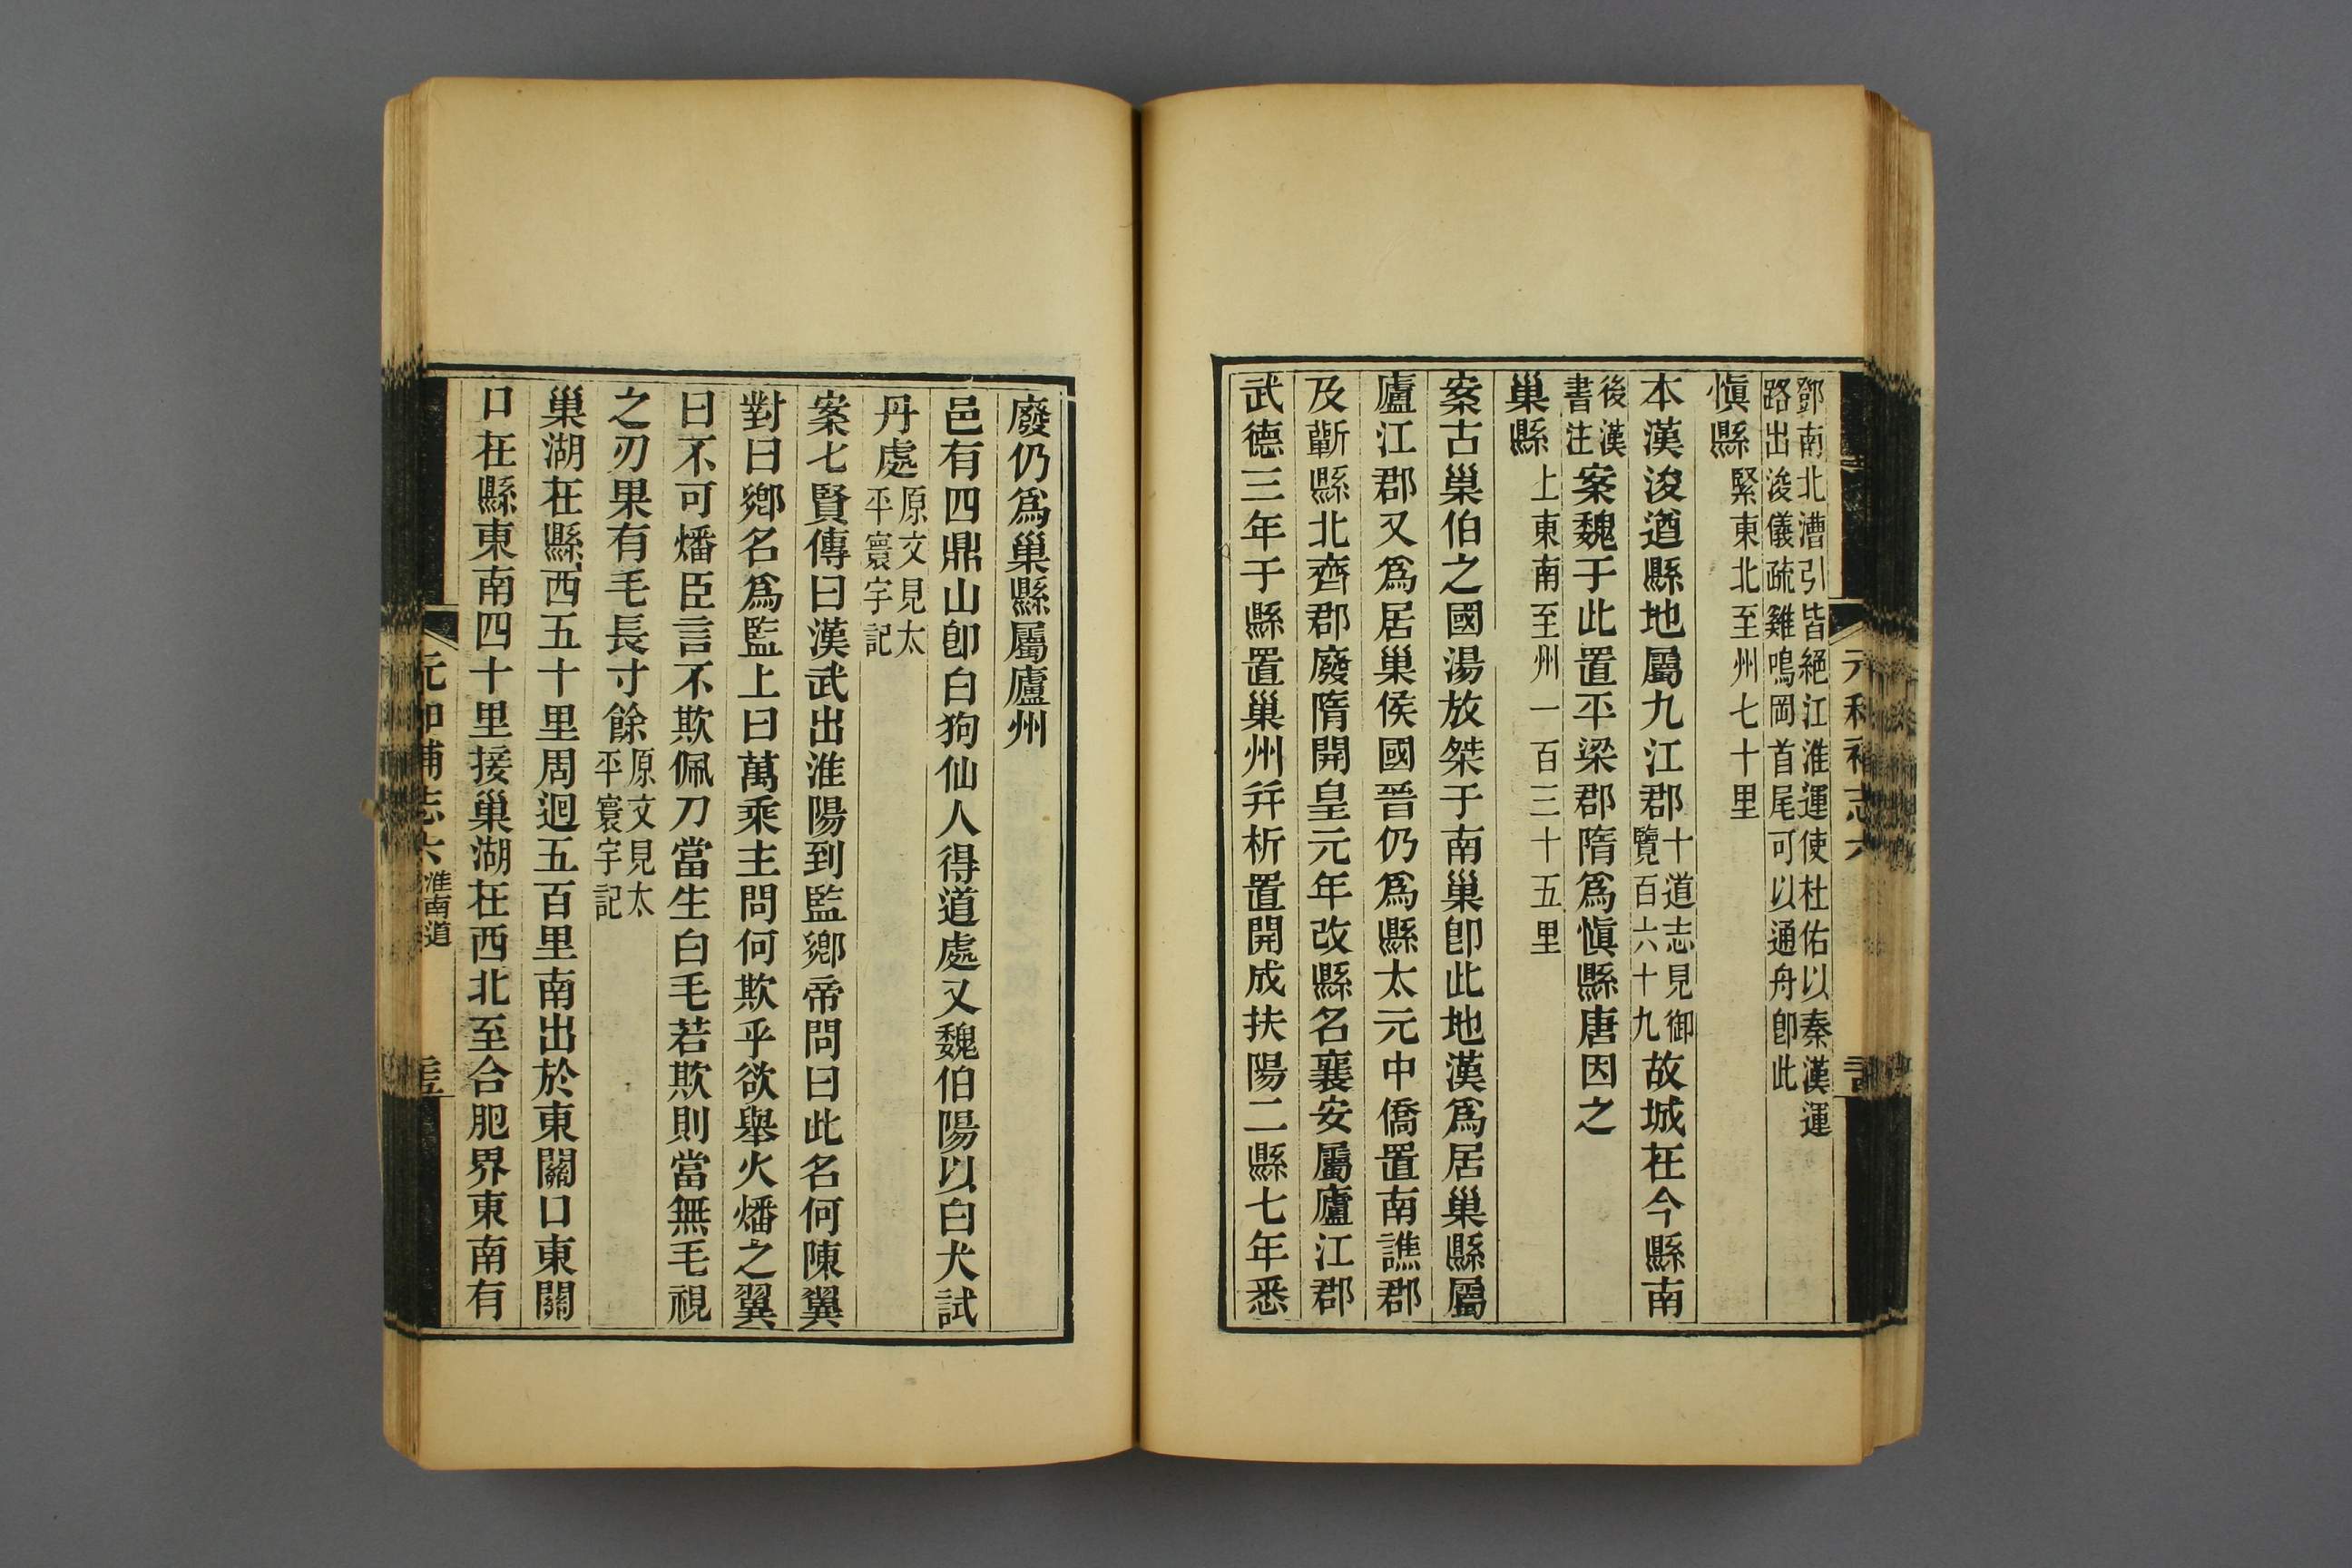 元和補志六
鄧南北漕引皆絕江淮運使杜佑以秦漢運
路出浚儀疏雞鳴岡首尾可以通舟卽此
愼縣緊東北至州七十里
本漢浚遒縣地屬九江郡十道志見御覽百六十九故城在今縣南
後漢書注案魏于此置平梁郡隋爲愼縣唐因之
巢縣上東南至州一百三十五里
案古巢伯之國湯放桀于南巢卽此地漢爲居巢縣屬
廬江郡又爲居巢侯國晉仍爲縣太元中僑置南譙郡
及蘄縣北齊郡廢隋開皇元年改縣名襄安屬廬江郡
武德三年于縣置巢州幷析置開成扶陽二縣七年悉
廢仍爲巢縣屬廬州
邑有四鼎山卽白狗仙人得道處又魏伯陽以白犬試
丹處原文見太平寰宇記
案七賢傳曰漢武出淮陽到監鄉帝問曰此名何陳翼
對曰鄉名爲監上曰萬乘主問何欺乎欲舉火燔之翼
曰不可燔臣言不欺佩刀當生白毛若欺則當無毛視
之刃果有毛長寸餘原文見太平寰宇記
巢湖在縣西五十里周迴五百里南出於東關口東關
口在縣東南四十里接巢湖在西北至合肥界東南有
元和補志六 淮南道